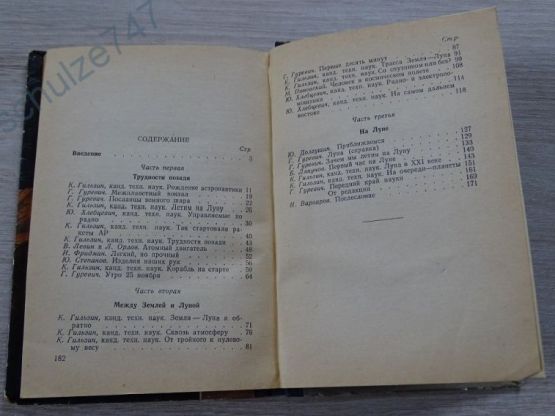 schulze747
СОДЕРЖАНИЕ
Стр.
Введение 3
Часть первая
Трудности позади
К. Гильзин, канд. техн. наук. Рождение астронавтики 11
Г. Гуревич. Межпланетный вокзал 19
Г. Гуревич. Посланцы земного шара 22
К. Гильзин, канд. техн. наук. Летим на Луну
Ю. Хлебцевич, канд. техн. наук. Управляемые по
радио
К. Гильзин, канд. техн. наук. Так стартовала ра-
кета АР
К. Гильзин, канд. техн. наук. Трудности позади
В. Левин и Л. Орлов. Атомный двигатель 48
И. Фридман. Легкий, но прочный 52
Ю. Степанов. Изделия наших рук 56
К. Гильзин, канд. техн. наук. Корабль на старте 59
Г. Гуревич. Утро 25 ноября 64
Часть вторая
Между Землей и Луной
К. Гильзин, канд. техн. наук. Земля — Луна и об-
ратно 71
К. Гильзин, канд. техн. наук. Сквозь атмосферу 76
К. Гильзин, канд. техн. наук. От тройного к нулевому
весу 81
182
Стр.
Г. Гуревич. Первые десять минут 87
К. Гильзин, канд. техн. наук. Трасса Земля—Луна 91
К. Гильзин, канд. техн. наук. Со спутником или без? 99
Человек в космическом полете 104
Ю. Хлебцевич, канд. техн. наук. Радио- и электро-
108
Ю. Хлебцевич, канд. техн. наук. На самом дальнем
востоке 118
Часть третья
На Луне
Ю. Долгушин. Приближаемся 127
Г. Гуревич. Луна (справка) 129
Г. Гуревич. Зачем мы летим на Луну 133
Б. Ляпунов. Первый час на Луне 143
К. Гильзин, канд. техн. наук. Луна в XXI веке 145
К. Гильзин, канд. техн. наук. На очереди—планеты 161
Г. Гуревич. Передний край науки 163
От редакции 169
Н. Варваров. Послесловие 171